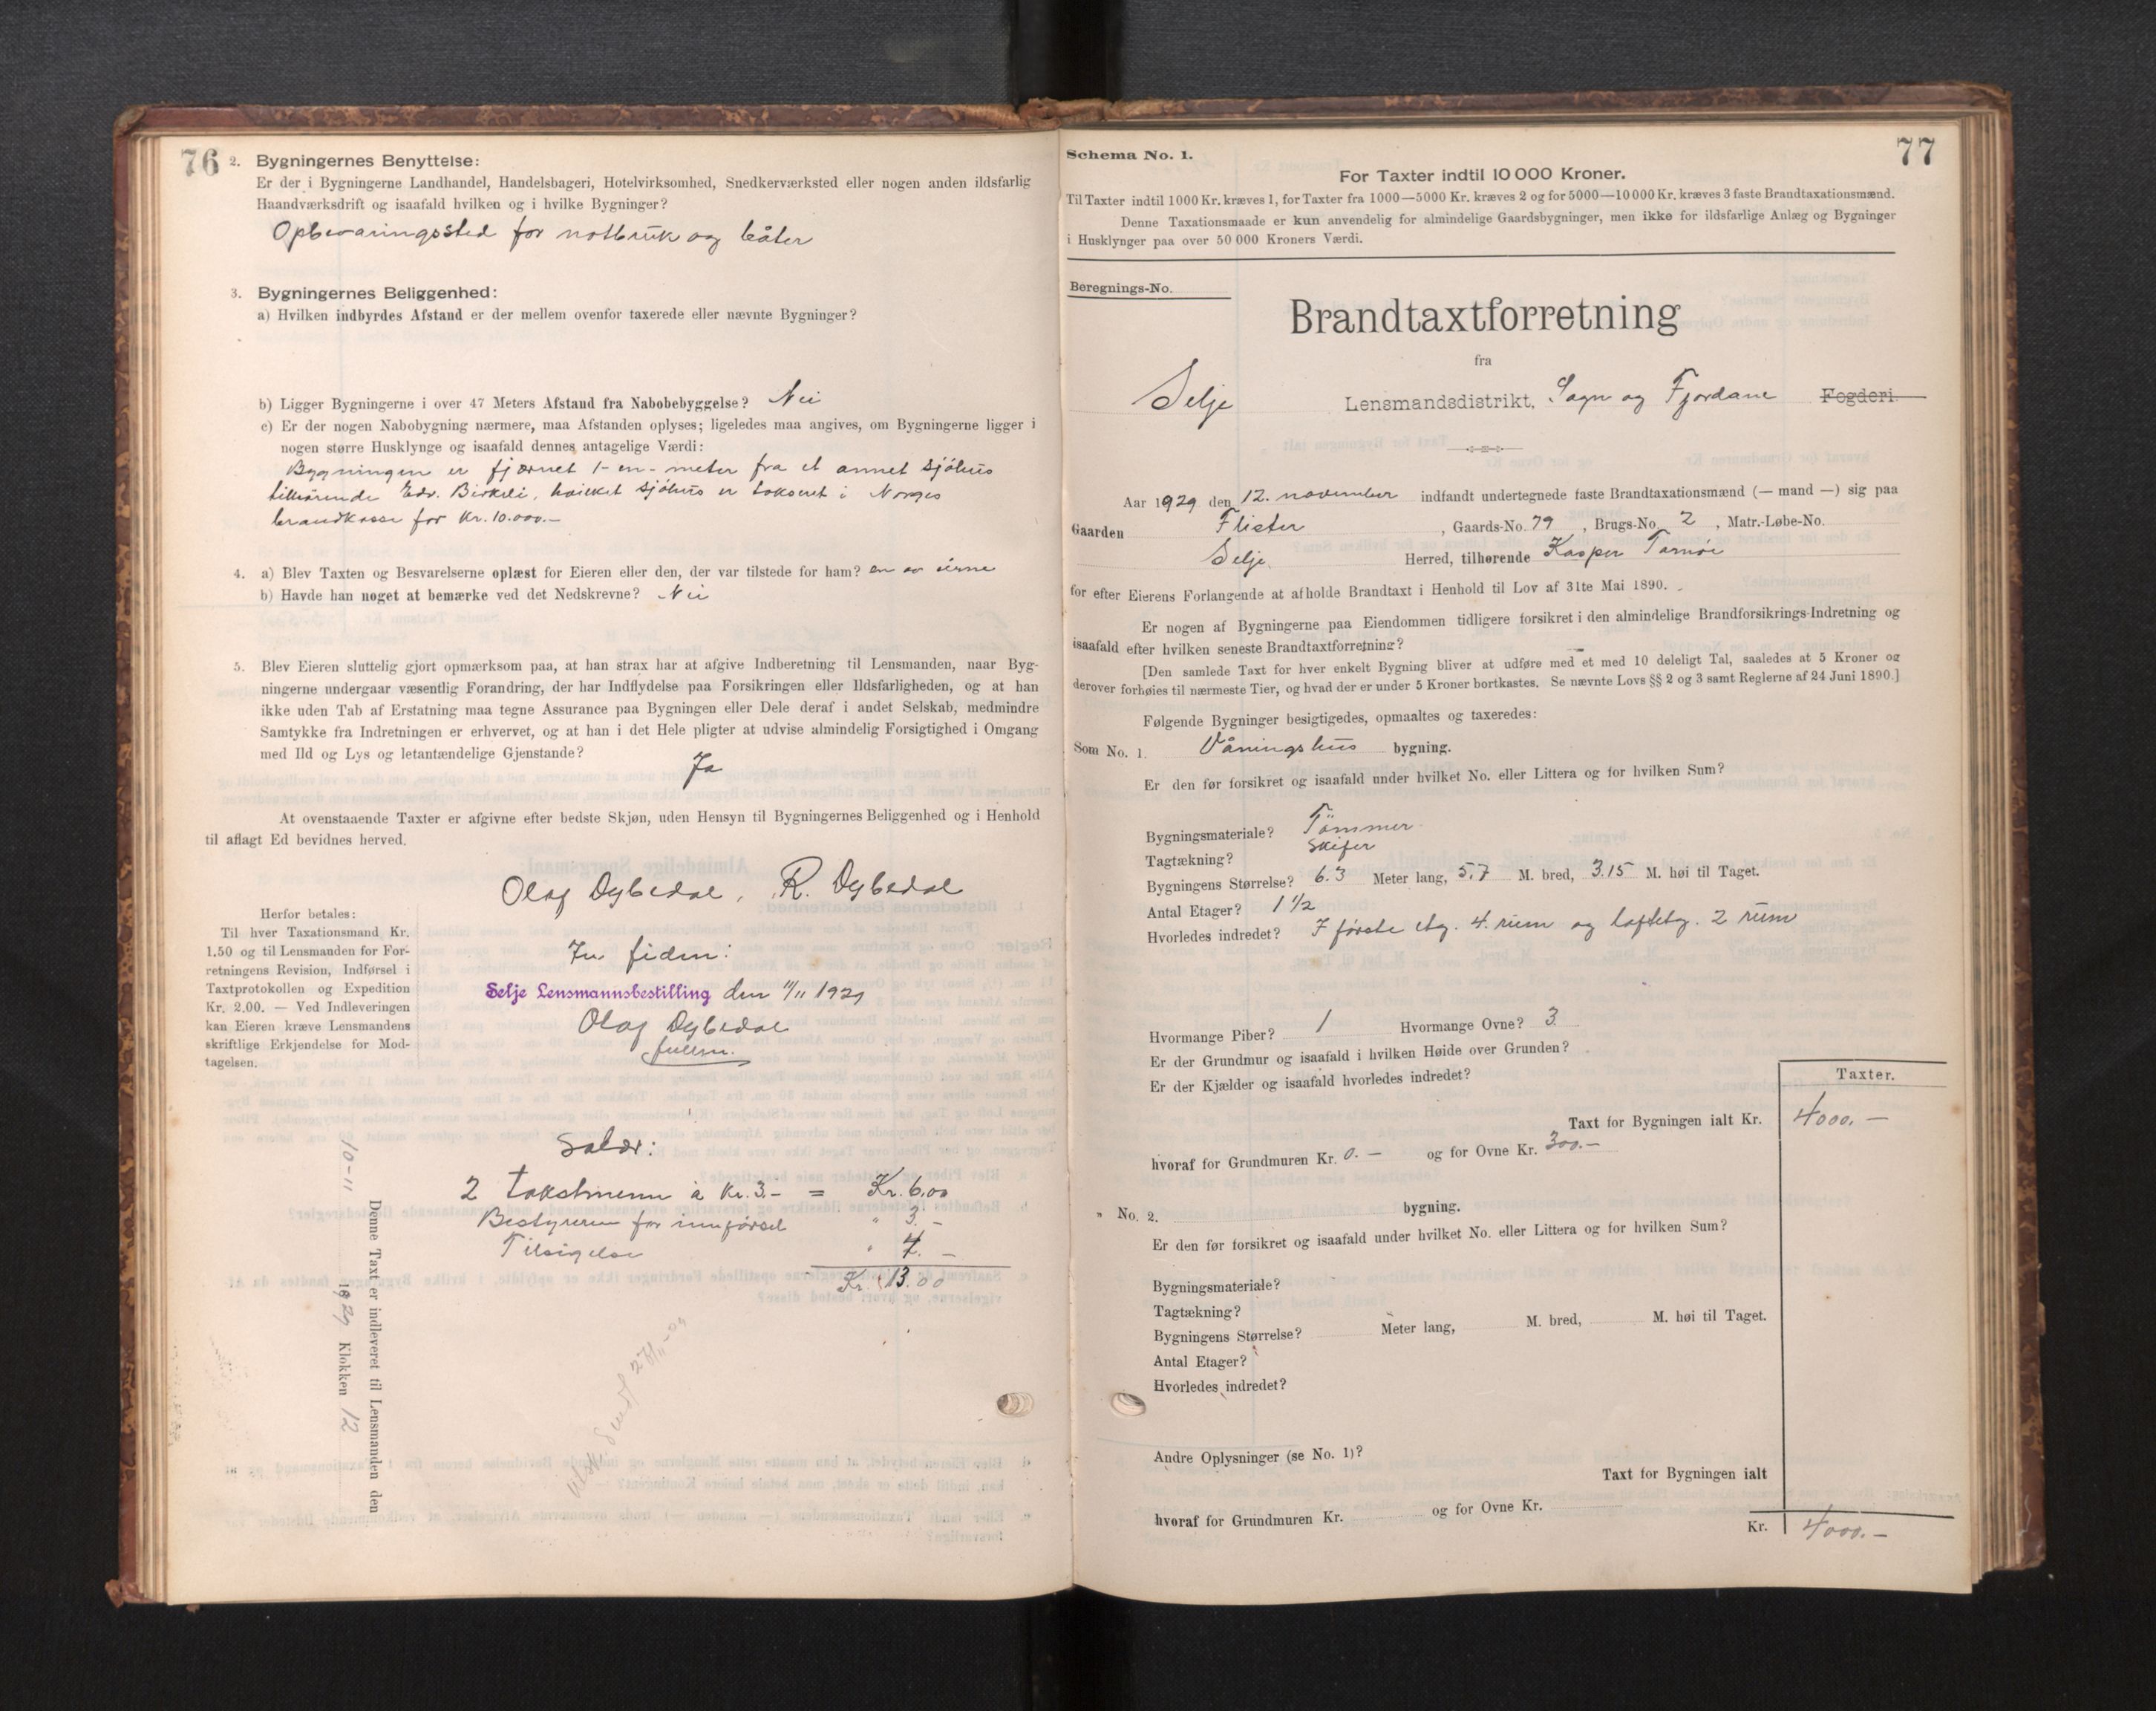 76
2. Bygningernes Benyttelse:
Er der i Bygningerne Landhandel, Handelsbageri, Hotelvirksomhed, Snedkerværksted eller nogen anden ildsfarlig
Haandværksdrift og isaafald hvilken og i hvilke Bygninger?
Opbevaringssted for notbruk og båter
3. Bygningernes Beliggenhed:
a) Hvilken indbyrdes Afstand er der mellem ovenfor taxerede eller nævnte Bygninger?
b) Ligger Bygningerne i over 47 Meters Afstand fra Nabobebyggelse? Nei
c) Er der nogen Nabobygning nærmere, maa Afstanden oplyses; ligeledes maa angives, om Bygningerne ligger i
nogen større Husklynge og isaafald dennes antagelige Værdi:
Bygningen er fjærnet 1-en-meter fra et annet sjöhus
tilhörende Edv. Birkeli, hvilket sjöhus er taksert i Norges
brandkasse for Kr. 10.000.-
4. a) Blev Taxten og Besvarelserne oplæst for Eieren eller den, der var tilstede for ham? en av eierne
b) Havde han noget at bemærke ved det Nedskrevne? Nei
5. Blev Eieren sluttelig gjort opmærksom paa, at han strax har at afgive Indberetning til Lensmanden, naar Byg-
ningerne undergaar væsentlig Forandring, der har Indflydelse paa Forsikringen eller Ildsfarligheden, og at han
ikke uden Tab af Erstatning maa tegne Assurance paa Bygningen eller Dele deraf i andet Selskab, medmindre
Samtykke fra Indretningen er erhvervet, og at han i det Hele pligter at udvise almindelig Forsigtighed i Omgang
med Ild og Lys og letantændelige Gjenstande?
Ja
At ovenstaaende Taxter er afgivne efter bedste Skjøn, uden Hensyn til Bygningernes Beliggenhed og i Henhold
til aflagt Ed bevidnes herved.
Olaf Dybedal, R. Dybedal
Herfor betales:
Til hver Taxationsmand Kr.
1.50 og til Lensmanden for For-
retningens Revision, Indførsel i
Taxtprotokollen og Expedition
Kr. 2.00. — Ved Indleveringen
kan Eieren kræve Lensmandens
skriftlige Erkjendelse for Mod-
tagelsen.
In fidem:
Selje Lensmannsbestilling den 11/11 1929
Olaf Dybedal
fullm.
Salær:
2 takstmenn à Kr. 3.- = Kr. 6.00
Bestyreren for innförsel " 3.-
Tilsigelse " 4.-
Kr. 13.00
Denne Taxt er indleveret til Lensmanden den
10-11 1929 Klokken 12
77
Schema No. 1.
For Taxter indtil 10 000 Kroner.
Til Taxter indtil 1000 Kr. kræves 1, for Taxter fra 1000—5000 Kr. kræves 2 og for 5000—10 000 Kr. kræves 3 faste Brandtaxationsmænd.
Denne Taxationsmaade er kun anvendelig for almindelige Gaardsbygninger, men ikke for ildsfarlige Anlæg og Bygninger
i Husklynger paa over 50 000 Kroners Værdi.
Beregnings-No.
Brandtaxtforretning
fra
Selje Lensmandsdistrikt, Sogn og Fjordane Fogderi.
Aar 1929 den 12. november indfandt undertegnede faste Brandtaxationsmænd (— mand —) sig paa
Gaarden Flister, Gaards-No. 79, Brugs-No. 2, Matr.-Løbe-No.
Selje Herred, tilhørende Kasper Tarnöe
for efter Eierens Forlangende at afholde Brandtaxt i Henhold til Lov af 31te Mai 1890.
Er nogen af Bygningerne paa Eiendommen tidligere forsikret i den almindelige Brandforsikrings-Indretning og
isaafald efter hvilken seneste Brandtaxtforretning? —
[Den samlede Taxt for hver enkelt Bygning bliver at udføre med et med 10 deleligt Tal, saaledes at 5 Kroner og
derover forhøies til nærmeste Tier, og hvad der er under 5 Kroner bortkastes. Se nævnte Lovs §§ 2 og 3 samt Reglerne af 24 Juni 1890.]
Følgende Bygninger besigtigedes, opmaaltes og taxeredes:
Som No. 1. Våningshus bygning.
Er den før forsikret og isaafald under hvilket No. eller Littera og for hvilken Sum?
Bygningsmateriale? Tömmer
Tagtækning? Skifer
Bygningens Størrelse? 6.3 Meter lang, 5,7 M. bred, 3.15 M. høi til Taget.
Antal Etager? 1 1/2
Hvorledes indredet? I förste etg. 4. rum og loftetg. 2 rum
Hvormange Piber? 1 Hvormange Ovne? 3
Er der Grundmur og isaafald i hvilken Høide over Grunden?
Er der Kjælder og isaafald hvorledes indredet?
Taxter.
Taxt for Bygningen ialt Kr. 4000.—
hvoraf for Grundmuren Kr. 0.— og for Ovne Kr. 300.—
" No. 2. bygning.
Er den før forsikret og isaafald under hvilket No. eller Littera og for hvilken Sum?
Bygningsmateriale?
Tagtækning?
Bygningens Størrelse? Meter lang, M. bred, M. høi til Taget.
Antal Etager?
Hvorledes indredet?
Andre Oplysninger (se No. 1)?
Taxt for Bygningen ialt
hvoraf for Grundmuren Kr. og for Ovne Kr.
Kr. 4000.—